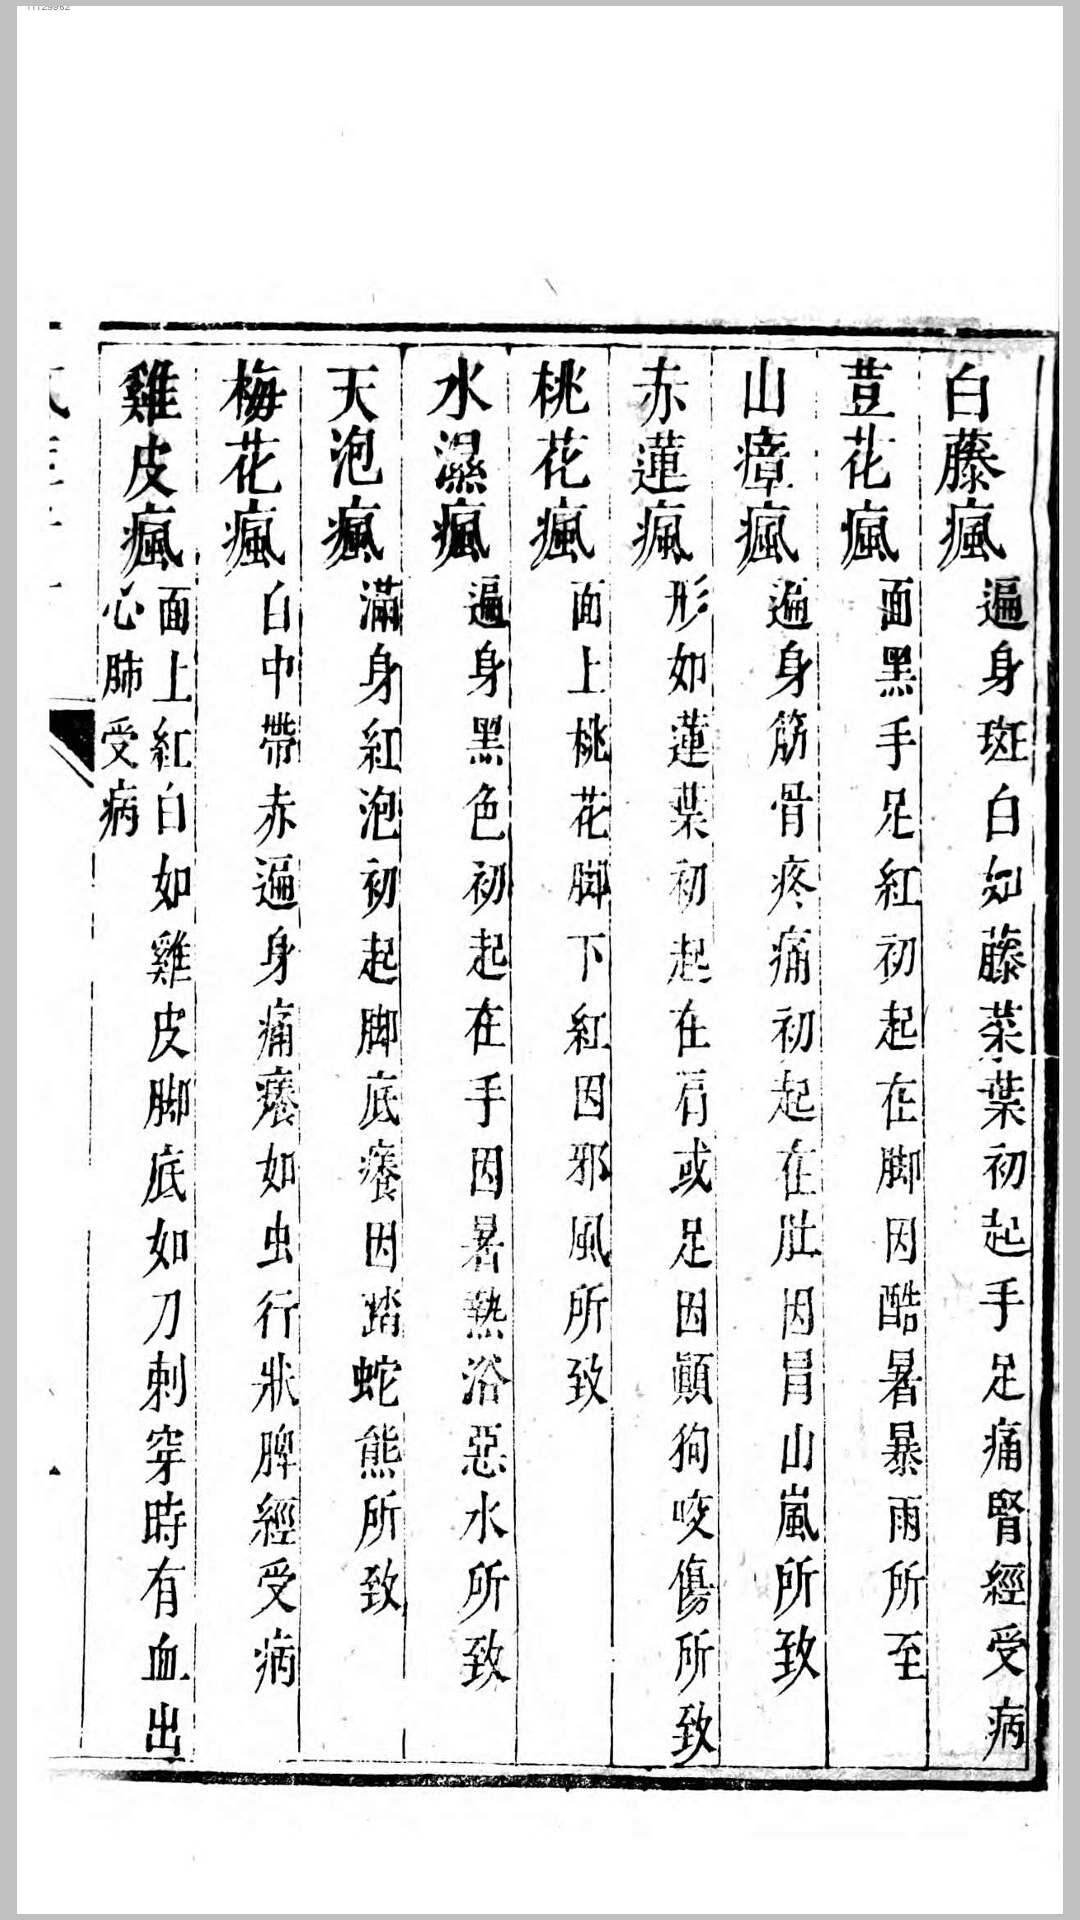 白藤瘋 遍身斑白如藤菜葉初起手足痛腎經受病
荳花瘋 面黑手足紅初起在脚因酷暑暴雨所至
山瘴瘋 遍身筋骨疼痛初起在肚因冐山嵐所致
赤蓮瘋 形如蓮葉初起在肩或足因顚狗咬傷所致
桃花瘋 面上桃花脚下紅因邪風所致
水濕瘋 遍身黑色初起在手因暑熱浴惡水所致
天泡瘋 滿身紅泡初起脚底癢因踏蛇熊所致
梅花瘋 白中帶赤遍身痛癢如虫行狀脾經受病
雞皮瘋 面上紅白如雞皮脚底如刀刺穿時有血出
心肺受病